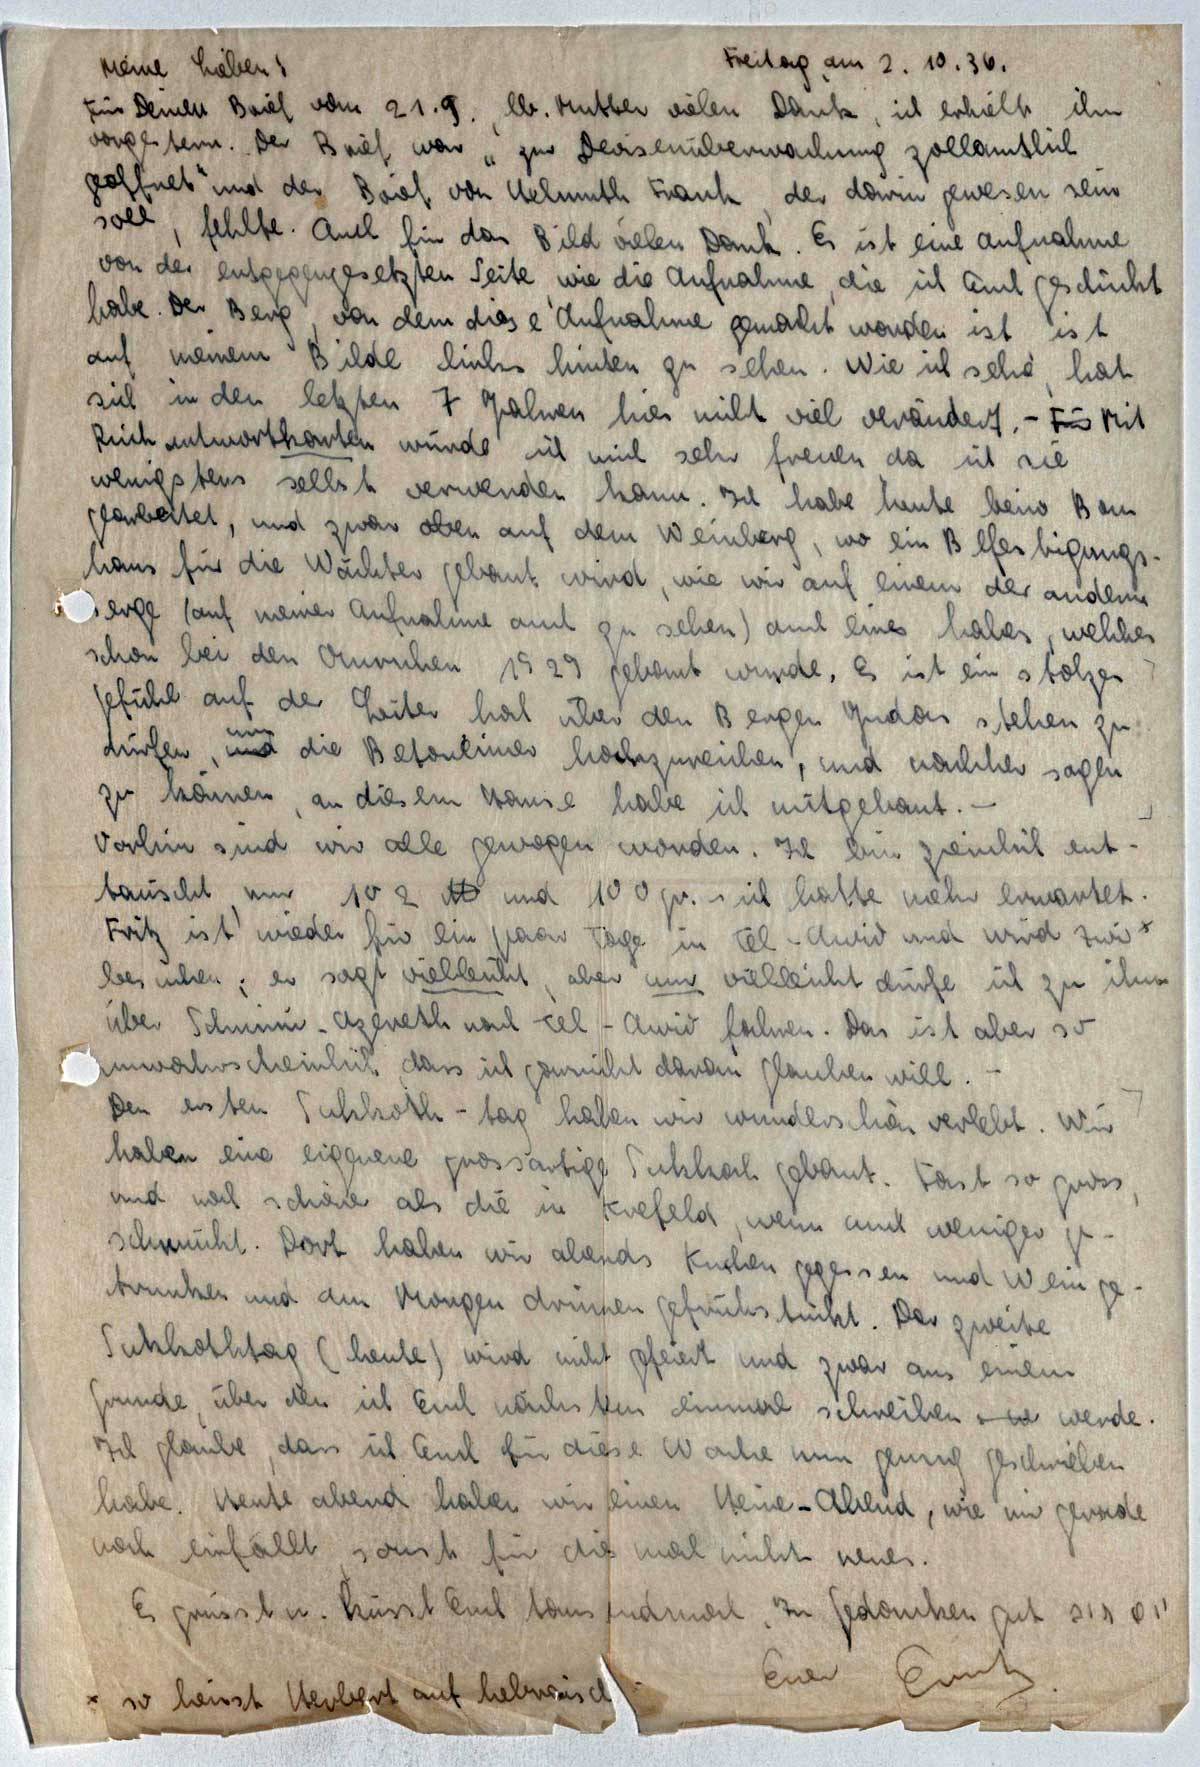 Meine Lieben! Freitag am 2.10.36.
Für Deinen Brief vom 21.9., lb. Mutter vielen Dank, ich erhielt ihn
vorgestern. Der Brief war „zur Devisenüberwachung zollamtlich
geöffnet" und der Brief von Helmuth Frank, der darin gewesen sein
soll, fehlte. Auch für das Bild vielen Dank. Es ist eine Aufnahme
von der entgegengesetzten Seite wie die Aufnahme, die ich Euch geschickt
habe. Der Berg, von dem diese Aufnahme gemacht worden ist ist
auf meinem Bilde links hinten zu sehen. Wie ich sehe, hat
sich in den letzten 7 Jahren hier nicht viel verändert. - Für Mit
Rückantwortkarten würde ich mich sehr freuen, da ich sie
wenigstens selbst verwenden kann. Ich habe heute beim Bau
gearbeitet, und zwar oben auf dem Weinberg, wo ein Befestigungs-
haus für die Wächter gebaut wird, wie wir auf einem der andern
Berge (auf meiner Aufnahme auch zu sehen) auch eines haben, welches
schon bei den Unruhen 1929 gebaut wurde. Es ist ein stolzes
Gefühl auf der Leiter hoch über den Bergen Judäas stehen zu
dürfen, und um die Betoneimer hochzureichen, und nachher sagen
zu können, an diesem Hause habe ich mitgebaut. -
Vorhin sind wir alle gewogen worden. Ich bin ziemlich ent-
täuscht, nur 102 ℔ und 100 gr. ich hatte mehr erwartet.
Fritz ist wieder für ein paar Tage in Tel-Awiv und wird Zwi*
besuchen; er sagt vielleicht, aber nur vielleicht dürfe ich zu ihm
über Schmini-Azereth nach Tel-Awiv fahren. Das ist aber so
unwahrscheinlich, dass ich garnicht daran glauben will. -
Den ersten Sukkoth-tag haben wir wunderschön verlebt. Wir
haben eine eigene grossartige Sukkah gebaut. Fast so gross,
und noch schöner als die in Krefeld, wenn auch weniger ge-
schmückt. Dort haben wir abends Kuchen gegessen und Wein ge-
trunken und am Morgen drinnen gefrühstückt. Der zweite
Sukkothtag (heute) wird nicht gefeiert und zwar aus einem
Grunde, über den ich Euch nächstens einmal schreiben werde.
Ich glaube, dass ich Euch für diese Woche nun genug geschrieben
habe. Heute abend haben wir einen Heine-Abend, wie mir gerade
noch einfällt, sonst für dies mal nichts neues.
Es grüsst u. küsst Euch tausendmal, In Gedanken gut
Euer Ernst.
* so heisst Herbert auf hebräisch